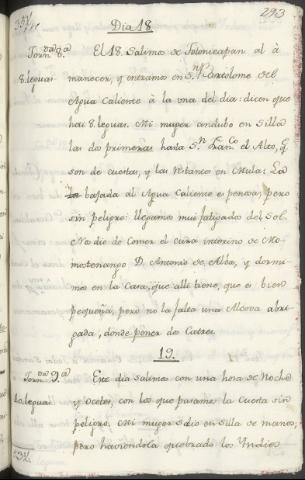 293
Dia 18.
Jorn.da 8.a El 18. Salimos de Totonicapan al a
8. leguas. manecer, y entramos en S.n Bartolome del
Agua Caliente à la vna del dia: dicen que
hai 8. leguas. Mi muger anduvo en Silla
las dos primeras hasta S.n Fran.co el Alto, q.e
son de cuestas, y las restantes en Mula: La
bajada al Agua Caliente es penosa, pero
sin peligro: llegamos mui fatigados del Sol.
No dio de Comer el Cura interino de Mo-
mostenango D. Antonio de Alba, y dormi-
mos en la Casa, que alli tiene, que es bien
pequeña, pero no la falta una Alcova abri-
gada, donde poner dos Catres.
19.
Jorn.da 9.a Este dia salimos con una hora de Noche
leguas y Ocotes, con los que pasamos la Cuesta sin
peligro. Mi muger salio en Silla de manos;
pero haviendola quebrado los Yndios